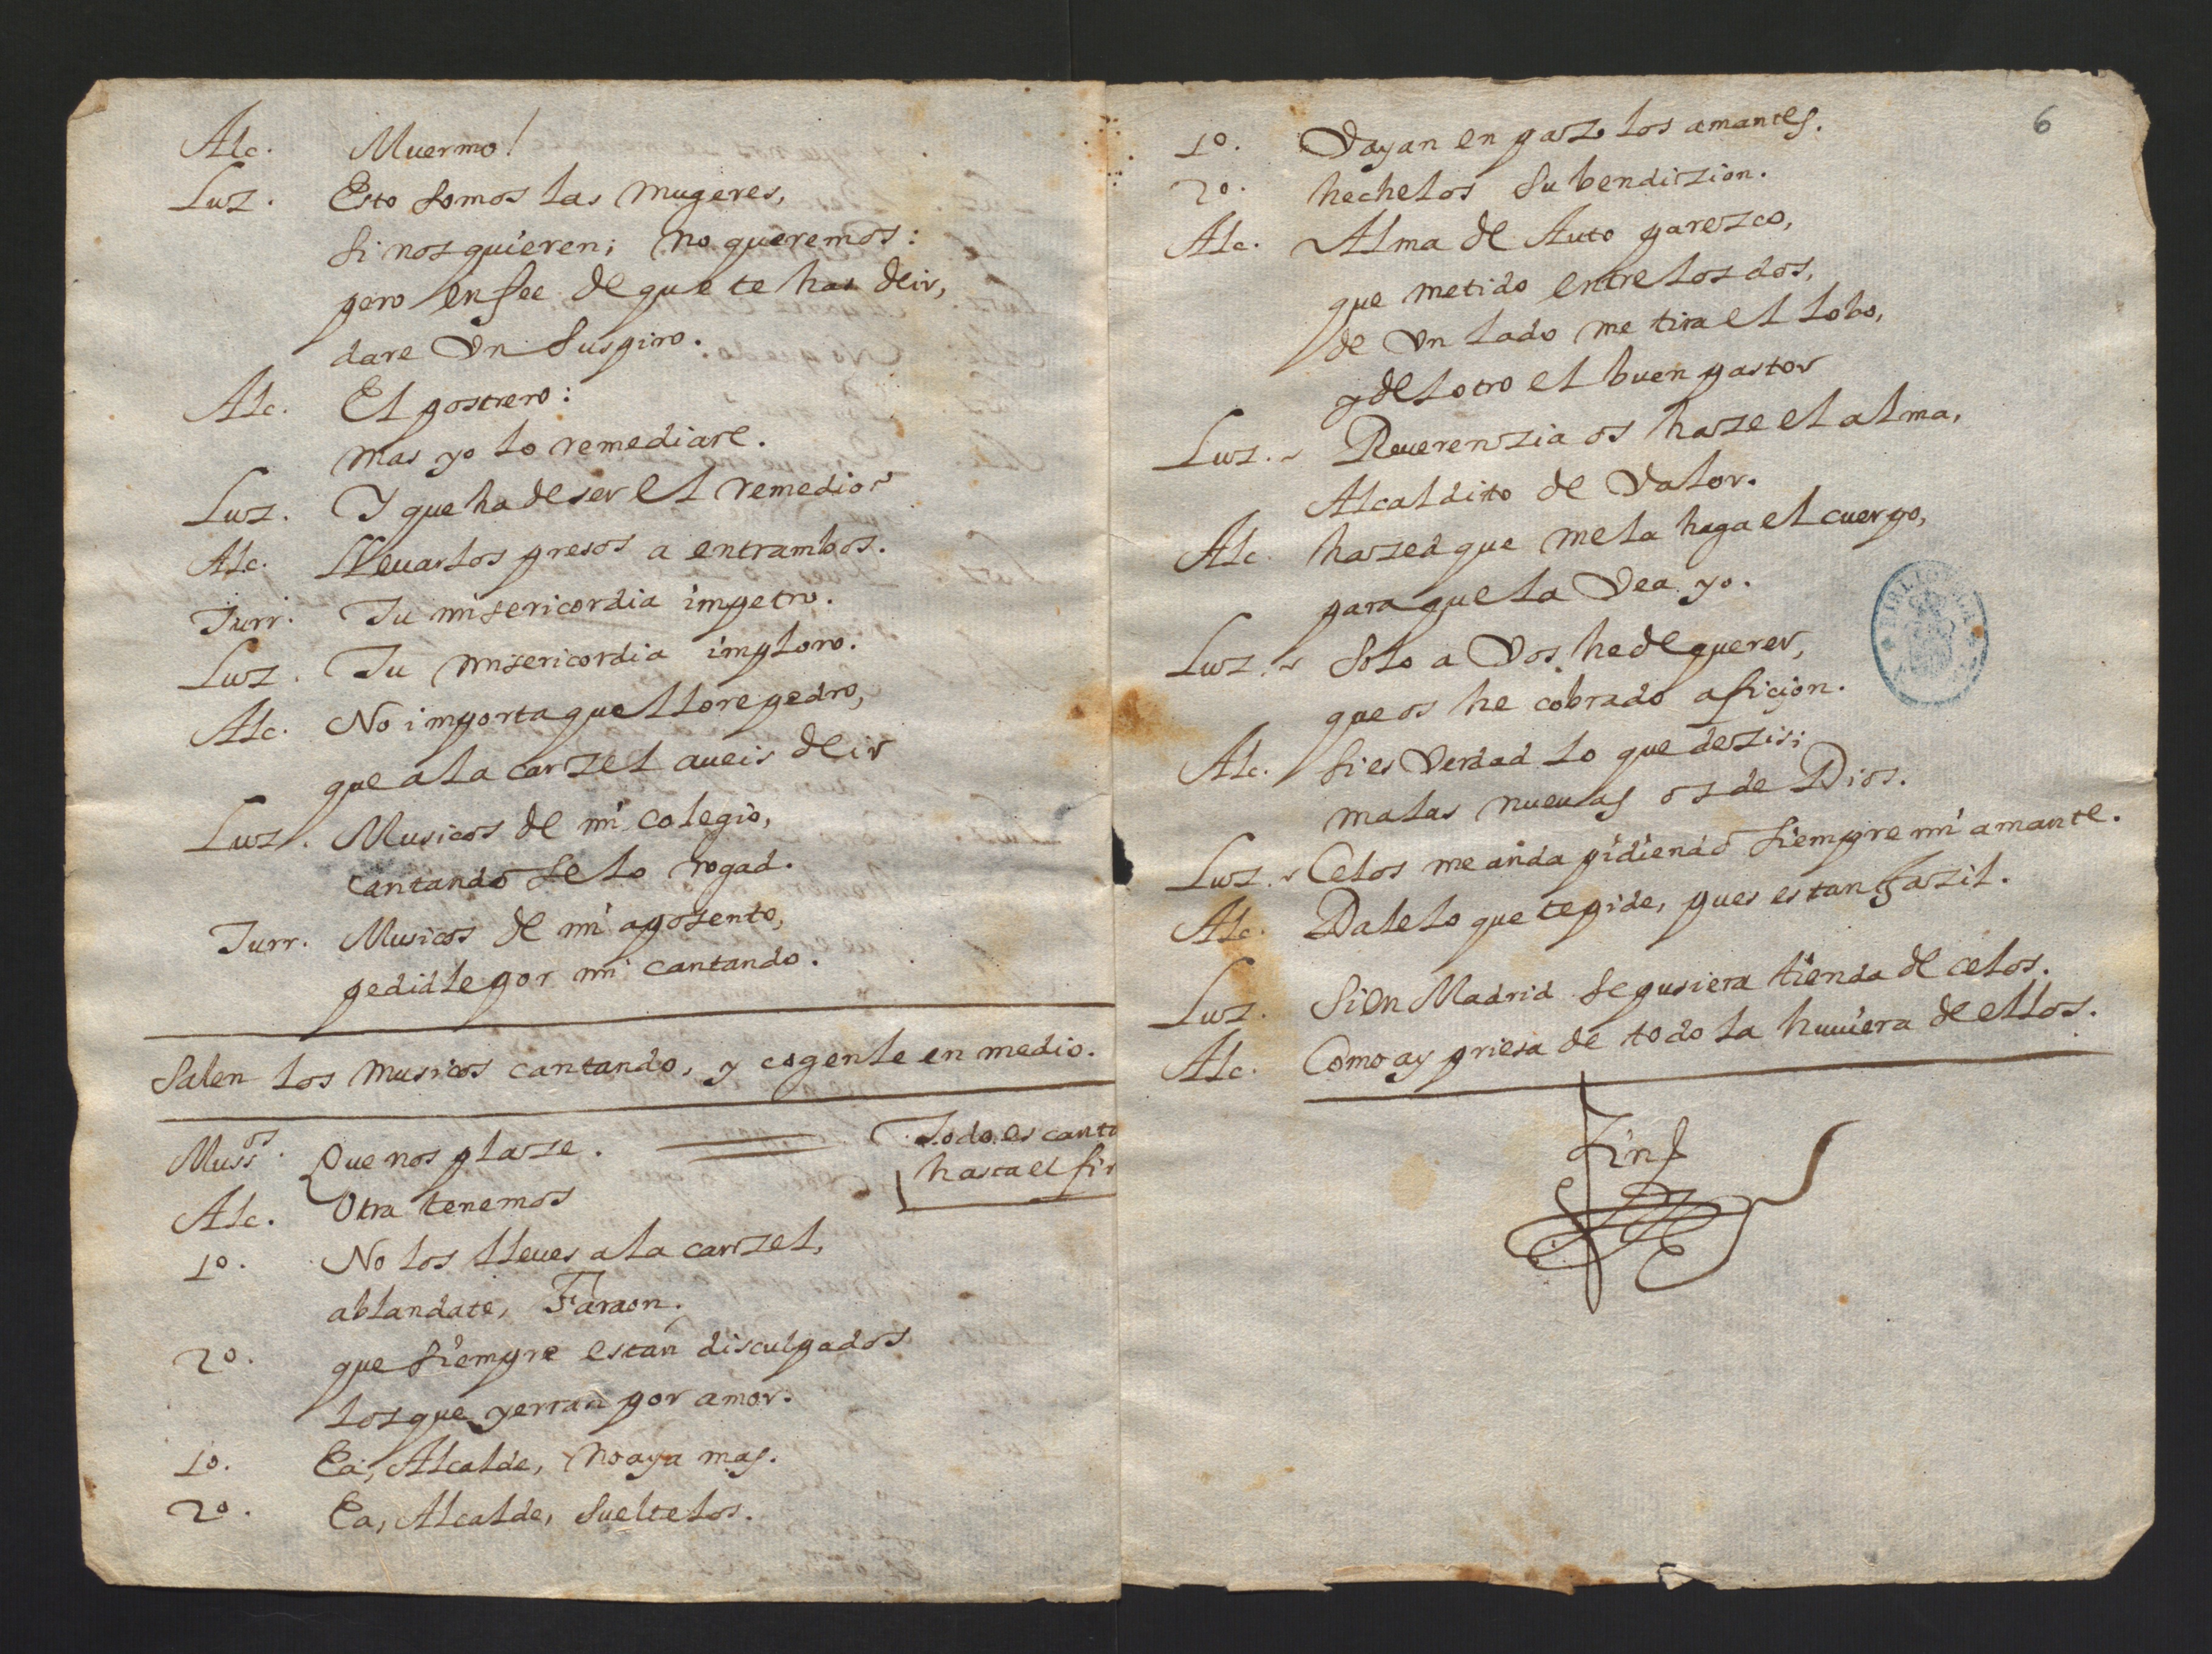 Alc. Muermo!
Luz. Esto somos las mugeres,
si nos quieren; no queremos:
pero en fee de que te has de ir,
dare Vn suspiro.
Alc. El postrero:
mas yo lo remediare.
Luz. Y que ha de ser el remedio?
Alc. Lleuarlos presos a entrambos.
Turr. Tu misericordia impetro.
Luz. Tu misericordia imploro.
Alc. No importa que llore pedro,
que a la carzel aueis de ir
Luz. Musicos de mi colegio,
cantando se lo rogad.
Turr. Musicos de mi aposento,
pedidle por mi cantando.
Salen los musicos cantando, y cogenle en medio.
Muss.os Que nos plaze. Todo es canta
hasta el fi
Alc. Otra tenemos
1o. No los lleues a la carzel,
ablandate, Faraon.
2o. que siempre estan disculpados
los que yerran por amor.
1o. Ea, Alcalde, no aya mas.
2o. Ea, Alcalde, sueltelos.
6
1o. Vayan en paz los amantes.
2o. hechelos su bendizion.
Alc. Alma de Auto parezco,
que metido entre los dos,
de Vn lado me tira el lobo,
y del otro el buen pastor
Luz. Reuerenzia os haze el alma,
Alcaldito de Valor.
Alc. hazed que me la haga el cuerpo,
para que la Vea yo.
Luz. Solo a Vos he de querer,
que os he cobrado aficion.
Alc. Si es Verdad lo que dezis;
malas nueuas os de Dios.
Luz. Celos me anda pidiendo siempre mi amante.
Alc. Dale lo que te pide, pues es tan fazil.
Luz. Si en Madrid se pusiera tienda de celos.
Alc. Como ay priesa de todo la huuiera de ellos.
Fin
BIBLIOTECA